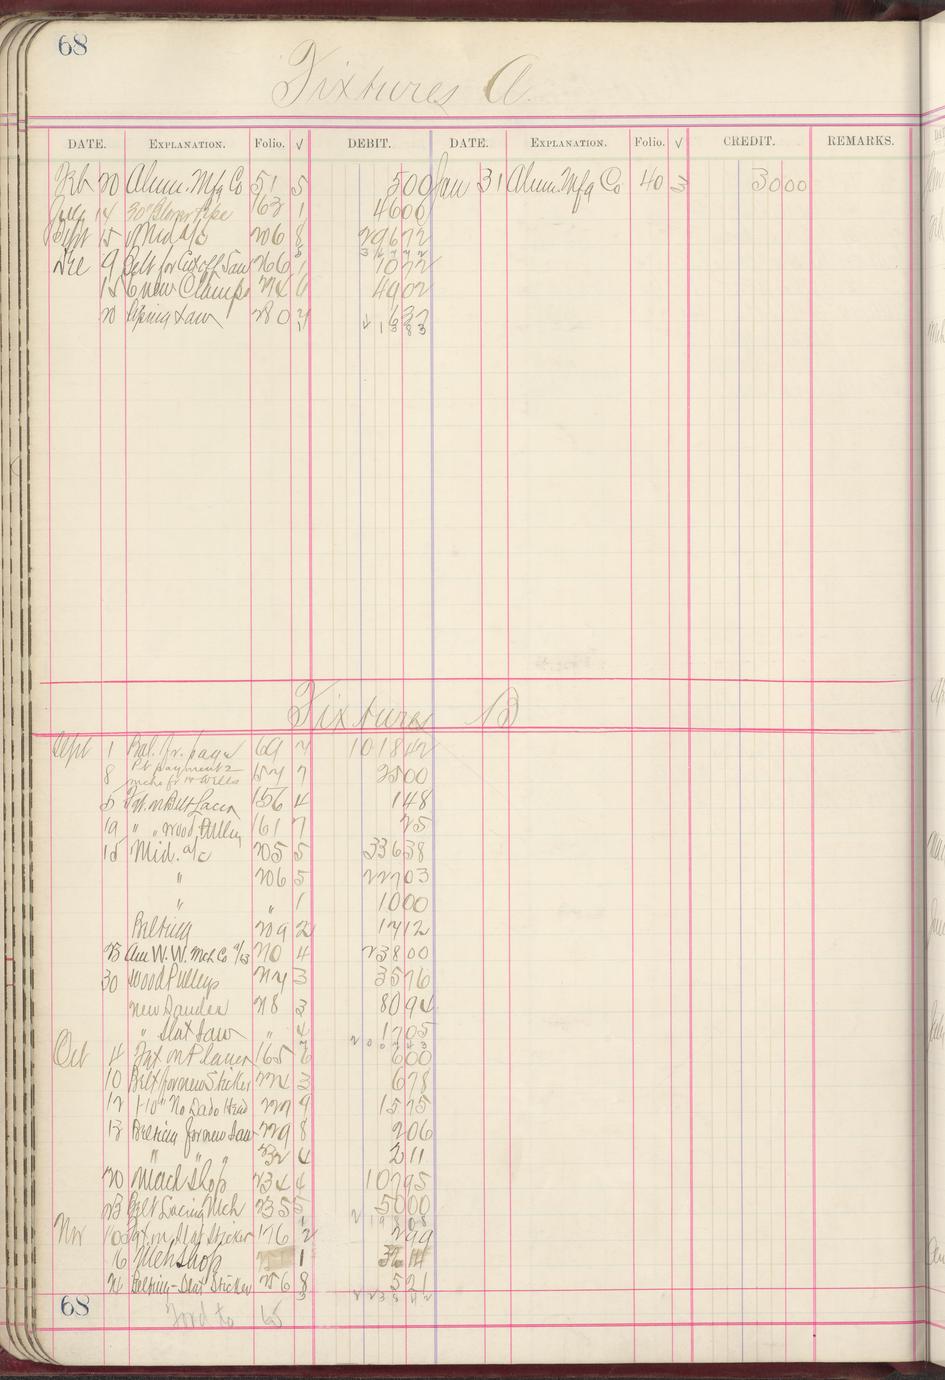 68
Fixtures A.
DATE. EXPLANATION. Folio. √ DEBIT. DATE. EXPLANATION. Folio. √ CREDIT. REMARKS.
Feb 20 Alum. Mfg Co 51 5 500 Jan 31 Alum. Mfg Co 40 3 3000
14 30" Blower Pipe 163 1 4600
Sept 15 Mid a/c 206 8 29672
Dec 9 Belt for Cutoff Saw 266 1 1072
15 6 new Clamps 274 6 4902
20 Saw 280 637
Fixtures B
Sept 1 Bal. fr. page 69 2 101842
8 Pt payment 2 mchs fr Wells 157 7 3500
5 Frt. on Belt Lacer 156 4 148
19 " " wood Pulley 161 7 25
15 Mid. a/c 205 5 33638
" 206 5 22703
" " 1 1000
Belting 209 2 1712
23 Am W. W. Mch Co a/c 210 4 23800
30 Wood Pulleys 217 3 3576
new Sander 218 3 8094
" Slat Saw " 4 1705
Oct 4 Frt on Planer 165 6 600
10 Belt for new Sticker 224 3 678
12 1-10" No Dado Head 227 9 1575
13 Belting for new Saw 229 8 206
" " " 232 4 211
20 Mach Shop 234 4 10795
23 Belt Lacing Mch 235 5 5000
Nov 10 Frt. on Slat Sticker 176 2 299
16 Meh Shop 1
24 Belting-Slat Sticker 256 8 521
68
Ford to 65